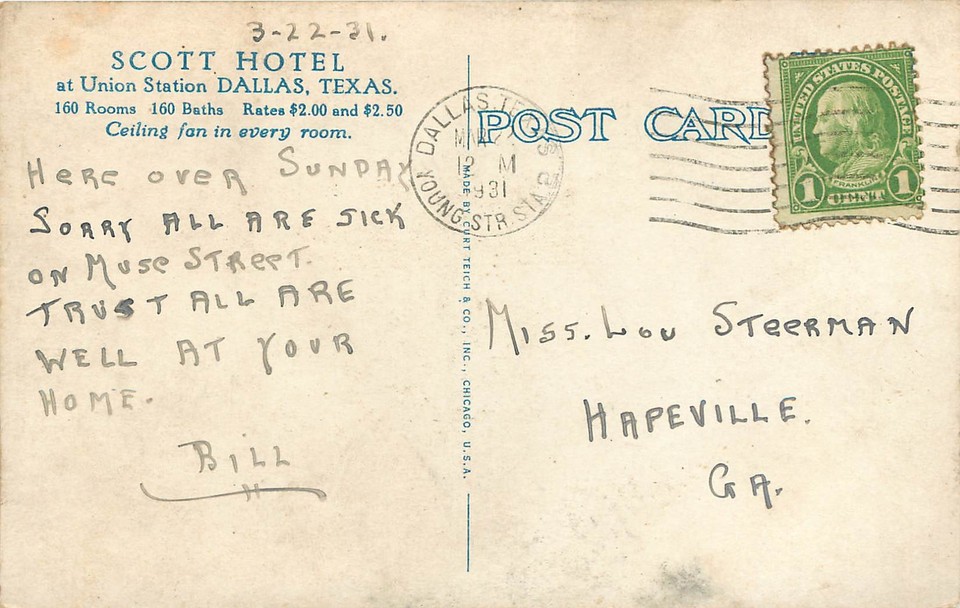 3-22-31.
SCOTT HOTEL
at Union Station DALLAS, TEXAS.
160 Rooms 160 Baths Rates $2.00 and $2.50
Ceiling fan in every room.
HERE OVER SUNDAY
SORRY ALL ARE SICK
ON MUSE STREET.
TRUST ALL ARE
WELL AT YOUR
HOME.
BILL
MADE BY CURT TEICH & CO., INC., CHICAGO, U.S.A.
POST CARD
DALLAS, TEXAS
MAR
12 M
1931
YOUNG STR. STA.
UNITED STATES POSTAGE
FRANKLIN
1 1
MISS. LOU STEERMAN
HAPEVILLE.
GA.